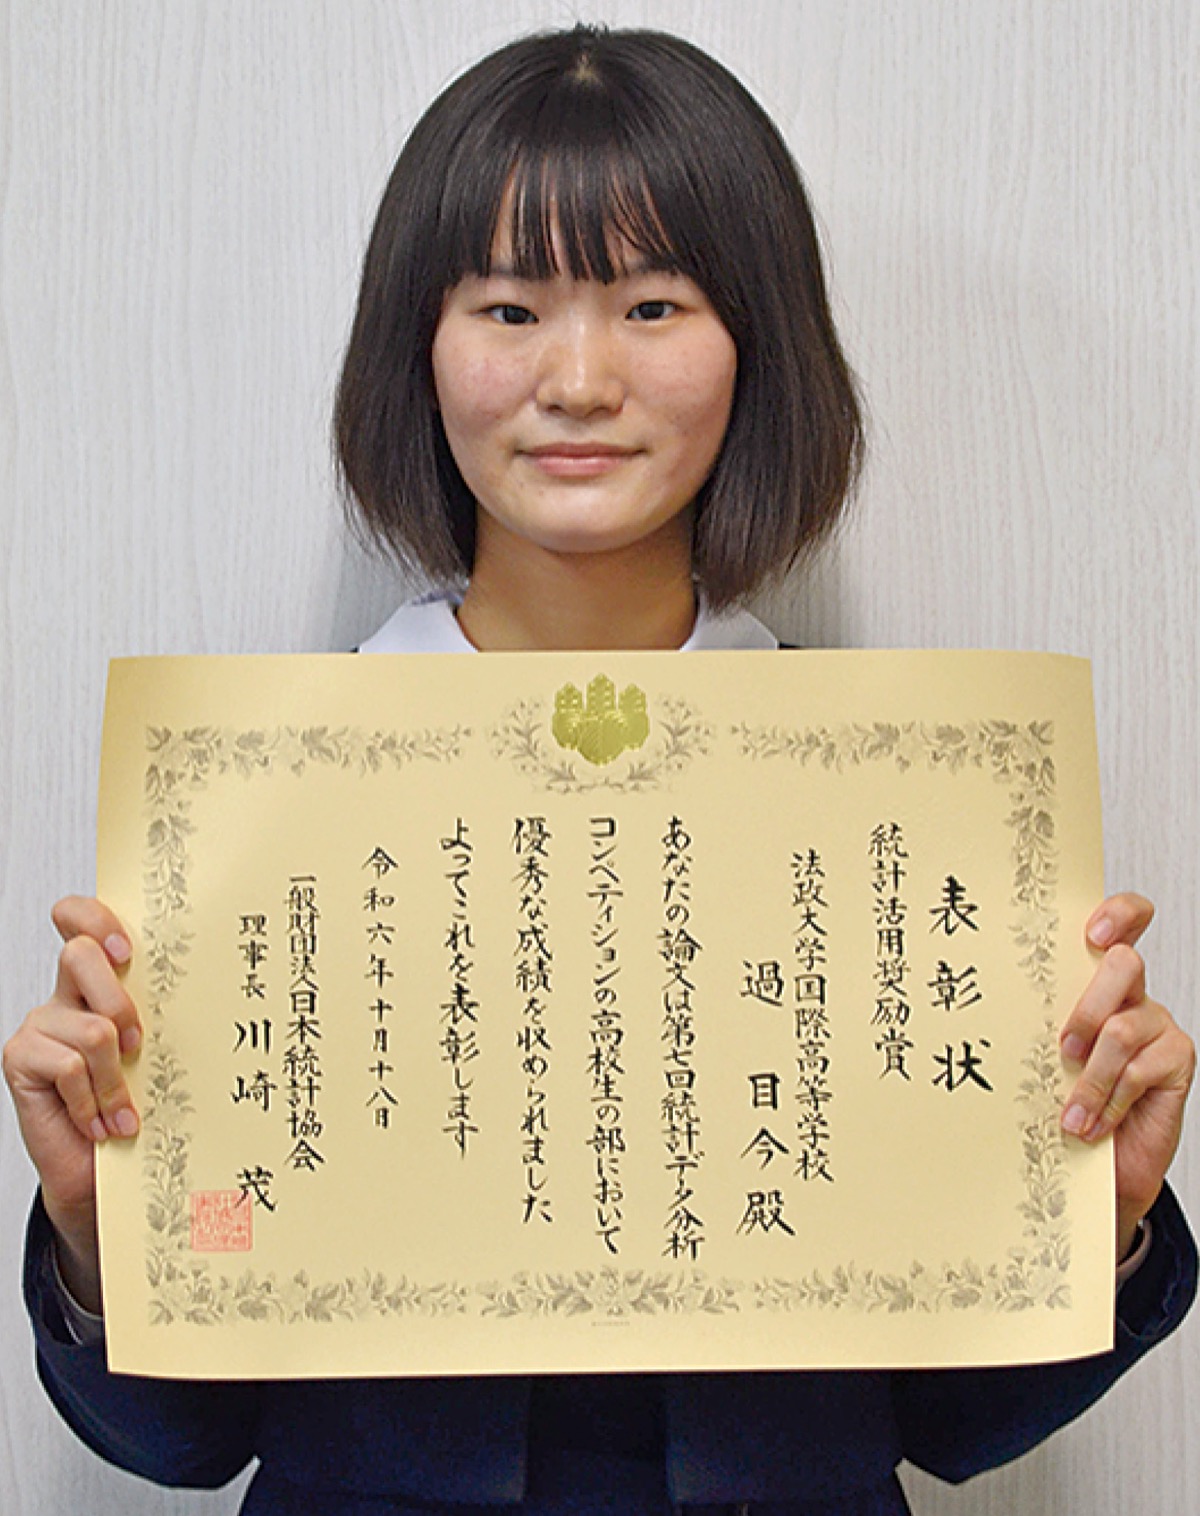 表彰状
統計活用奨励賞
法政大学国際高等学校
過目今殿
あなたの論文は第七回統計データ分析
コンペティションの高校生の部において
優秀な成績を収められました
よってこれを表彰します
令和六年十月十八日
一般財団法人日本統計協会
理事長 川崎 茂